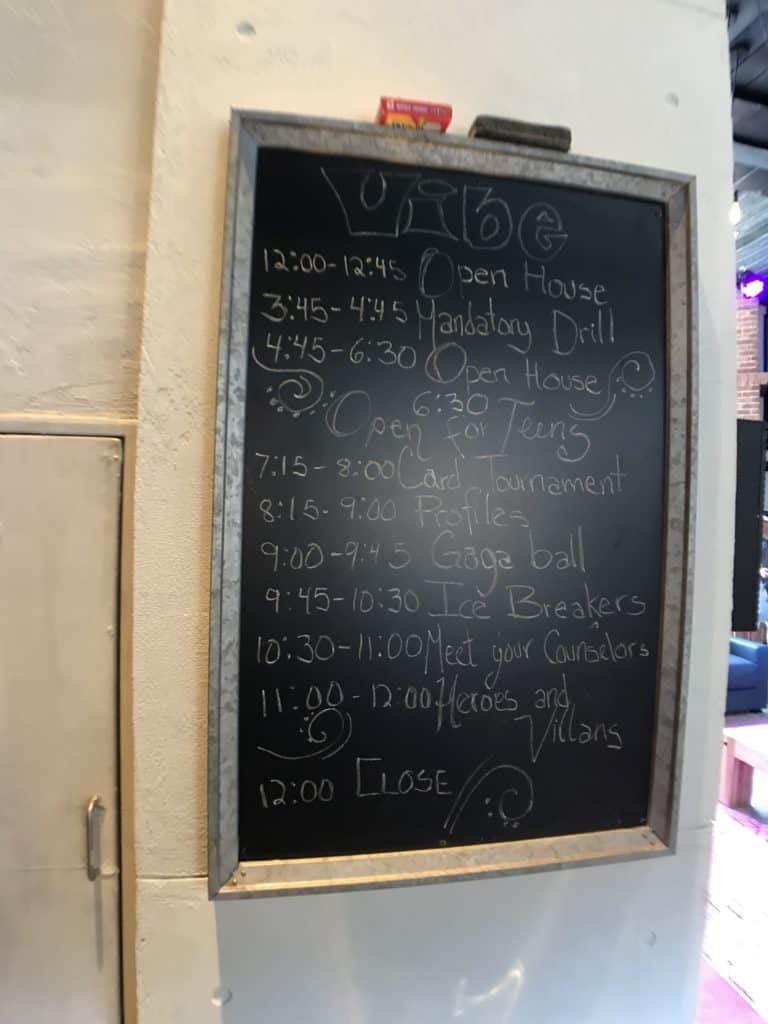 Vibe
12:00-12:45 Open House
3:45-4:45 Mandatory Drill
4:45-6:30 Open House
6:30
Open for Teens
7:15-8:00 Card Tournament
8:15-9:00 Profiles
9:00-9:45 Gaga ball
9:45-10:30 Ice Breakers
10:30-11:00 Meet your Counselors
11:00-12:00 Heroes and
Villans
12:00 CLOSE